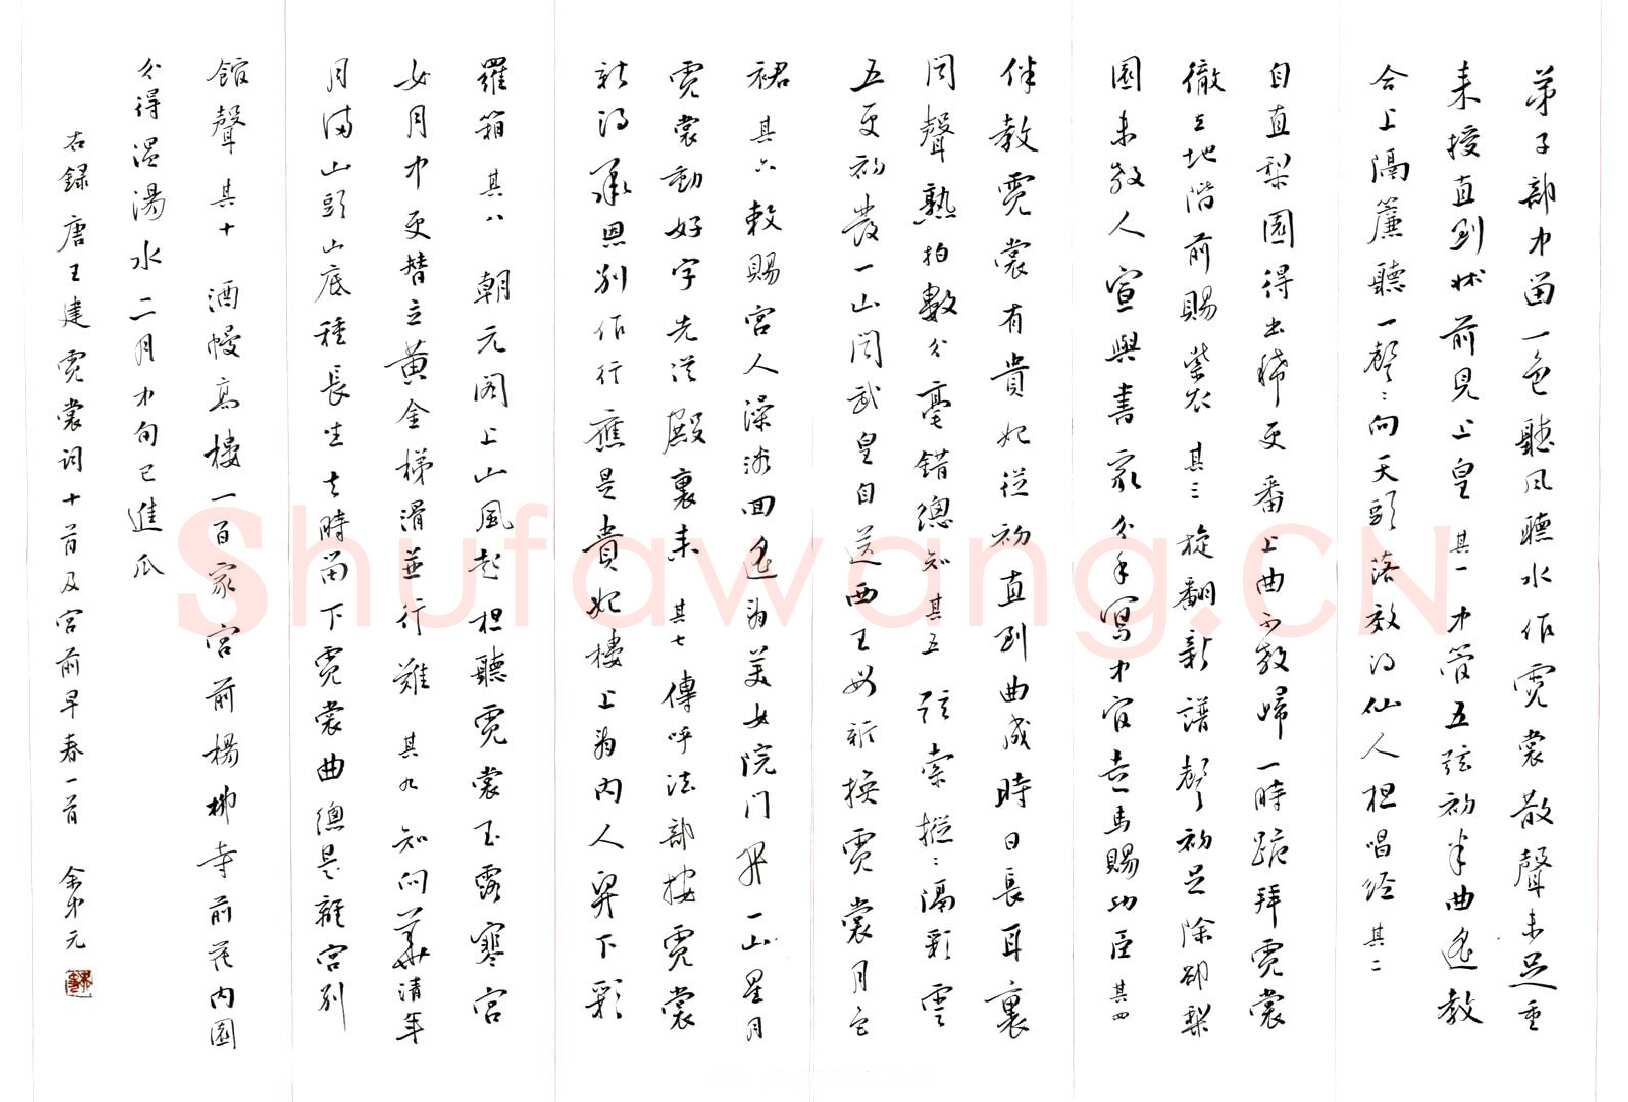 弟子部中留一色聽風聽水作霓裳散聲未足重
来授直到牀前見上皇 其一 中管五弦初半曲遥教
合上隔簾聽一聲〻向天頭落效得仙人夜唱經 其二
自直梨園得出稀更番上曲不教歸一時跪拜霓裳
徹立地階前賜紫衣 其三 旋翻新譜聲初足除却梨
園未教人宣與書家分手寫中官走馬賜功臣 其四
伴教霓裳有貴妃從初直到曲成時日長耳裏
聞聲熟拍數分毫錯總知 其五 弦索摐〻隔彩雲
五更初發一山聞武皇自送西王母新換霓裳月色
裙 其六 敕賜宮人澡浴回遥看美女院門開一山星月
霓裳動好字先從殿裏来 其七 傳呼法部按霓裳
新得承恩别作行應是貴妃樓上看内人舁下彩
羅箱 其八 朝元閣上山風起夜聽霓裳玉露寒宮
女月中更替立黄金梯滑並行難 其九 知向華清年
月滿山頭山底種長生去時留下霓裳曲總是離宮别
館聲 其十 酒幔高樓一百家宮前楊柳寺前花内園
分得温湯水二月中旬已進瓜
右録唐王建霓裳詞十首及宮前早春一首
Shufawang.CN